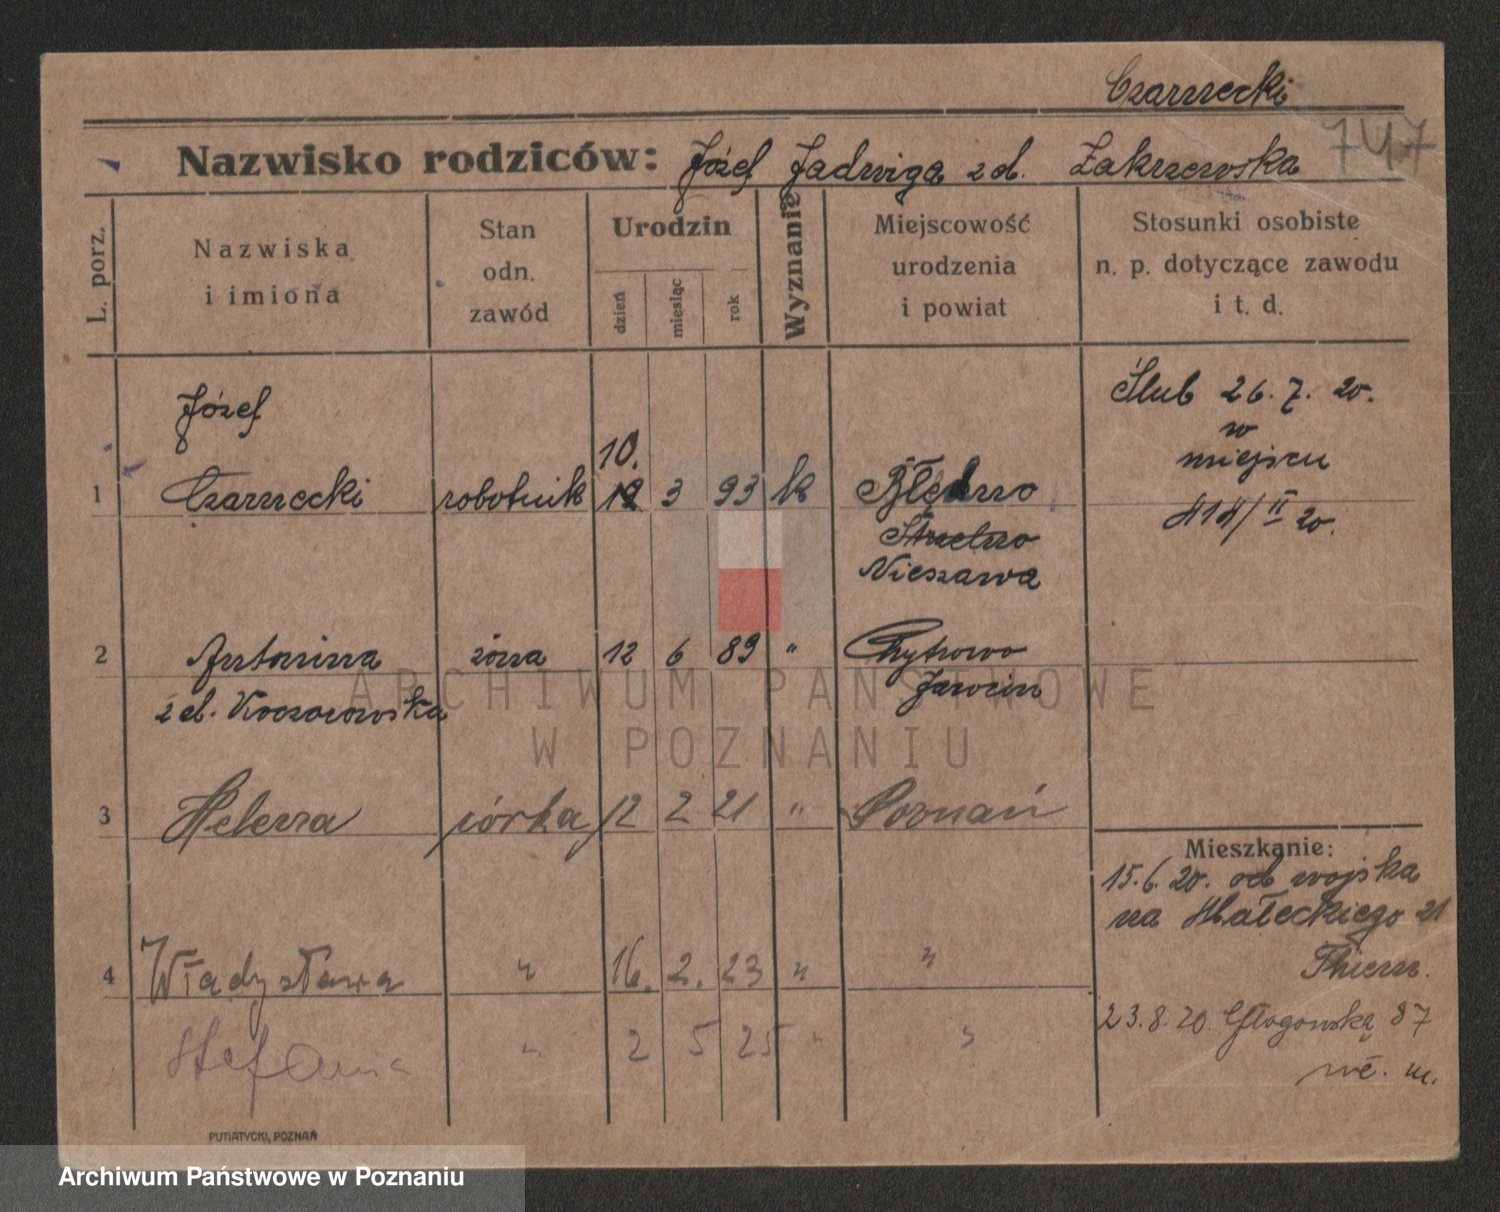 Czarnecki
747
Nazwisko rodziców: Józef Jadwiga z d. Zakrzewska
L. porz.
Nazwiska
i imiona
Stan
odn.
zawód
Urodzin
dzień
miesiąc
rok
Wyznanie
Miejscowość
urodzenia
i powiat
Stosunki osobiste
n. p. dotyczące zawodu
i t. d.
Józef
10.
1 Czarnecki robotnik 12 3 93 k
Strzelno
Nieszawa
Ślub 26.7. 20.
w
miejscu
414/II 20.
2 Antonina żona 12 6 89 " Chytrowo
z d. Koczorowska Jarocin
3 Helena córka 12 2 21 " Poznań
4 Władysława " 16. 2. 23 " "
Stefania " 2 5 25 " "
Mieszkanie:
15.6.20. od wojska
na Małeckiego 21
Thiem.
23.8.20 Głogowską 87
m.
PUTIATYCKI, POZNAŃ
ARCHIWUM PAŃSTWOWE
W POZNANIU
Archiwum Państwowe w Poznaniu